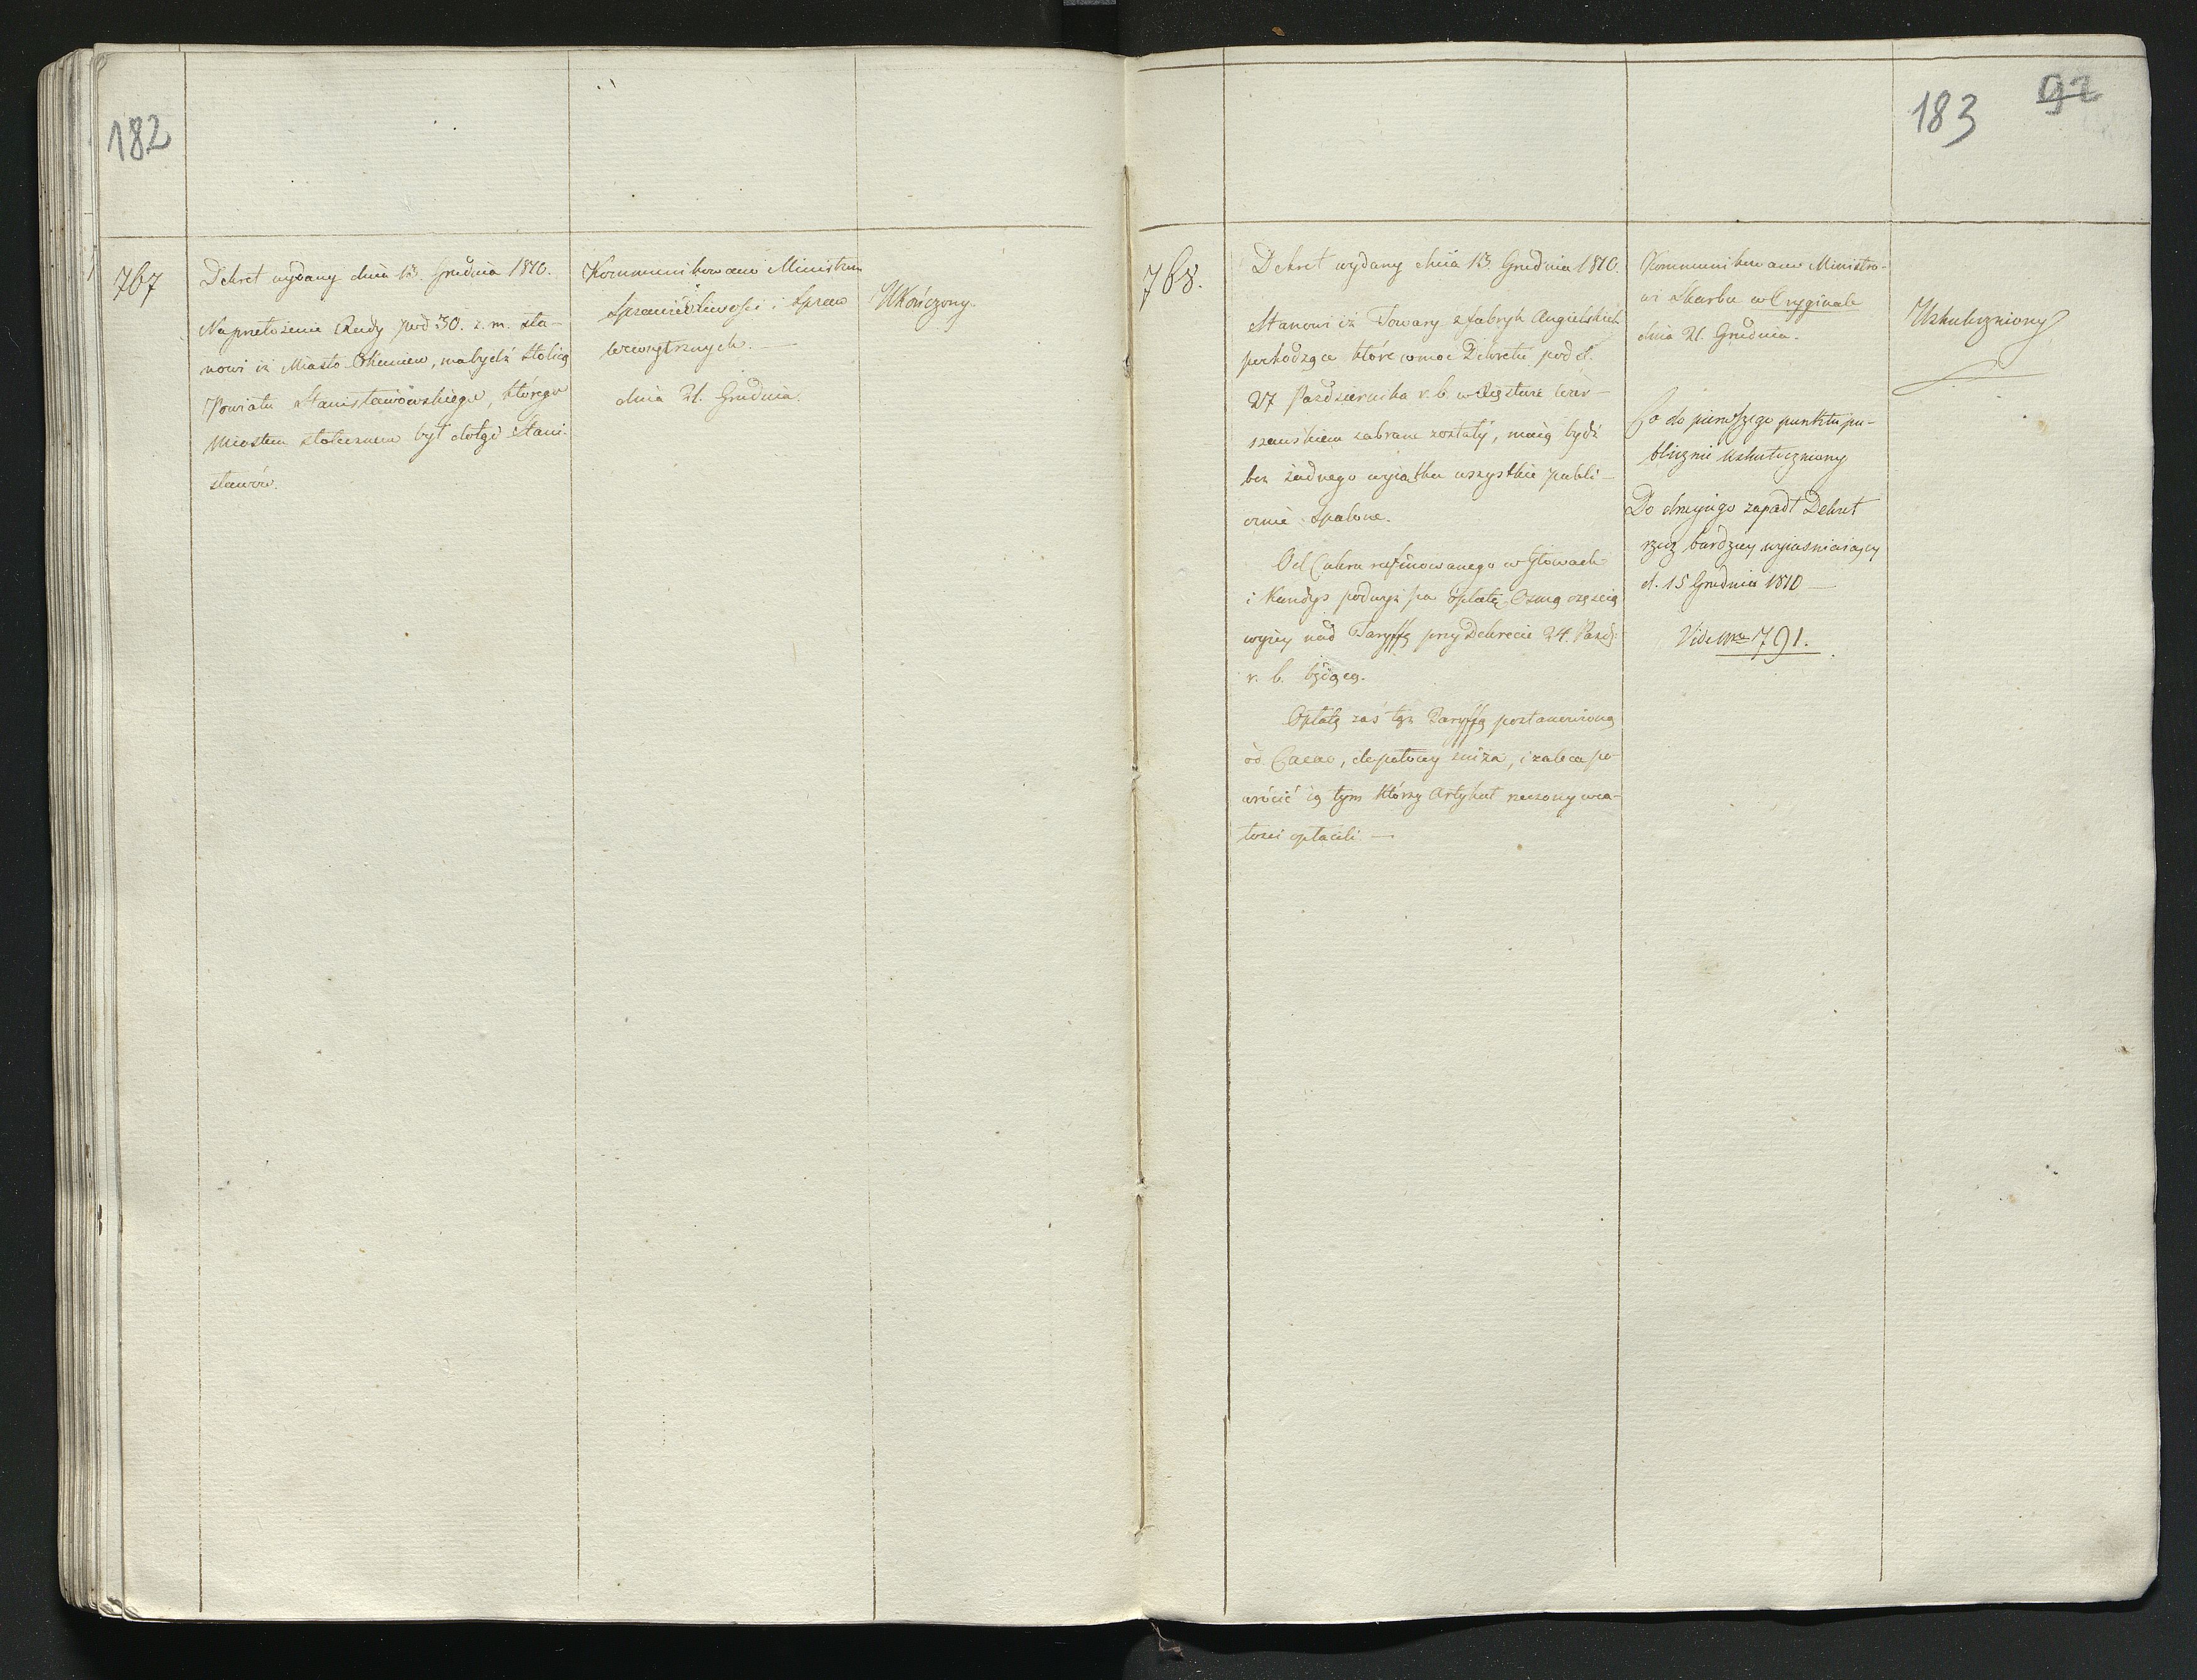 182
767
Dekret wydany dnia 13. Grudnia 1810.
Na przełożenie Rady pod 30. z. m. sta-
nowi iż Miasto Okuniew, ma bydź stolicą
Powiatu Stanisławowskiego, którego
Miastem stołecznem był dotąd Stani-
sławów.
Kommunikowano Ministrom
Sprawiedliwości i Spraw
wewnętrznych. —
dnia 21. Grudnia.
Ukończony.
183 92
768.
Dekret wydany dnia 13. Grudnia 1810.
Stanowi iż Towary z fabryk Angielskich
pochodzące które w moc Dekretu pod d.
27 Pazdziernika r. b. w Xięstwie War-
szawskiem zabrane zostały, maią bydź
bez żadnego wyiątku wszystkie publi-
cznie spalone.
Od Cukru rafinowanego w Głowach
i Kandys podwyższa opłatę Osmą częścią
wyżey nad Taryffę przy Dekrecie 24. Pazdz:
r. b. będącą.
Opłatę zaś tąż Taryffą postanowioną
od Cacao, do połowy zniża, i zaleca po-
wrócić ią tym którzy Artykuł rzeczony w ca-
łości opłacili —
Kommunikowano Ministro-
wi Skarbu w Oryginale
dnia 21. Grudnia.
Co do pierwszego punktu pu-
blicznie uskuteczniony
Do drugiego zapadł Dekret
rzecz bardziey wyiasniaiący
d. 15 Grudnia 1810 —
Vide Nro 791.
Uskuteczniony